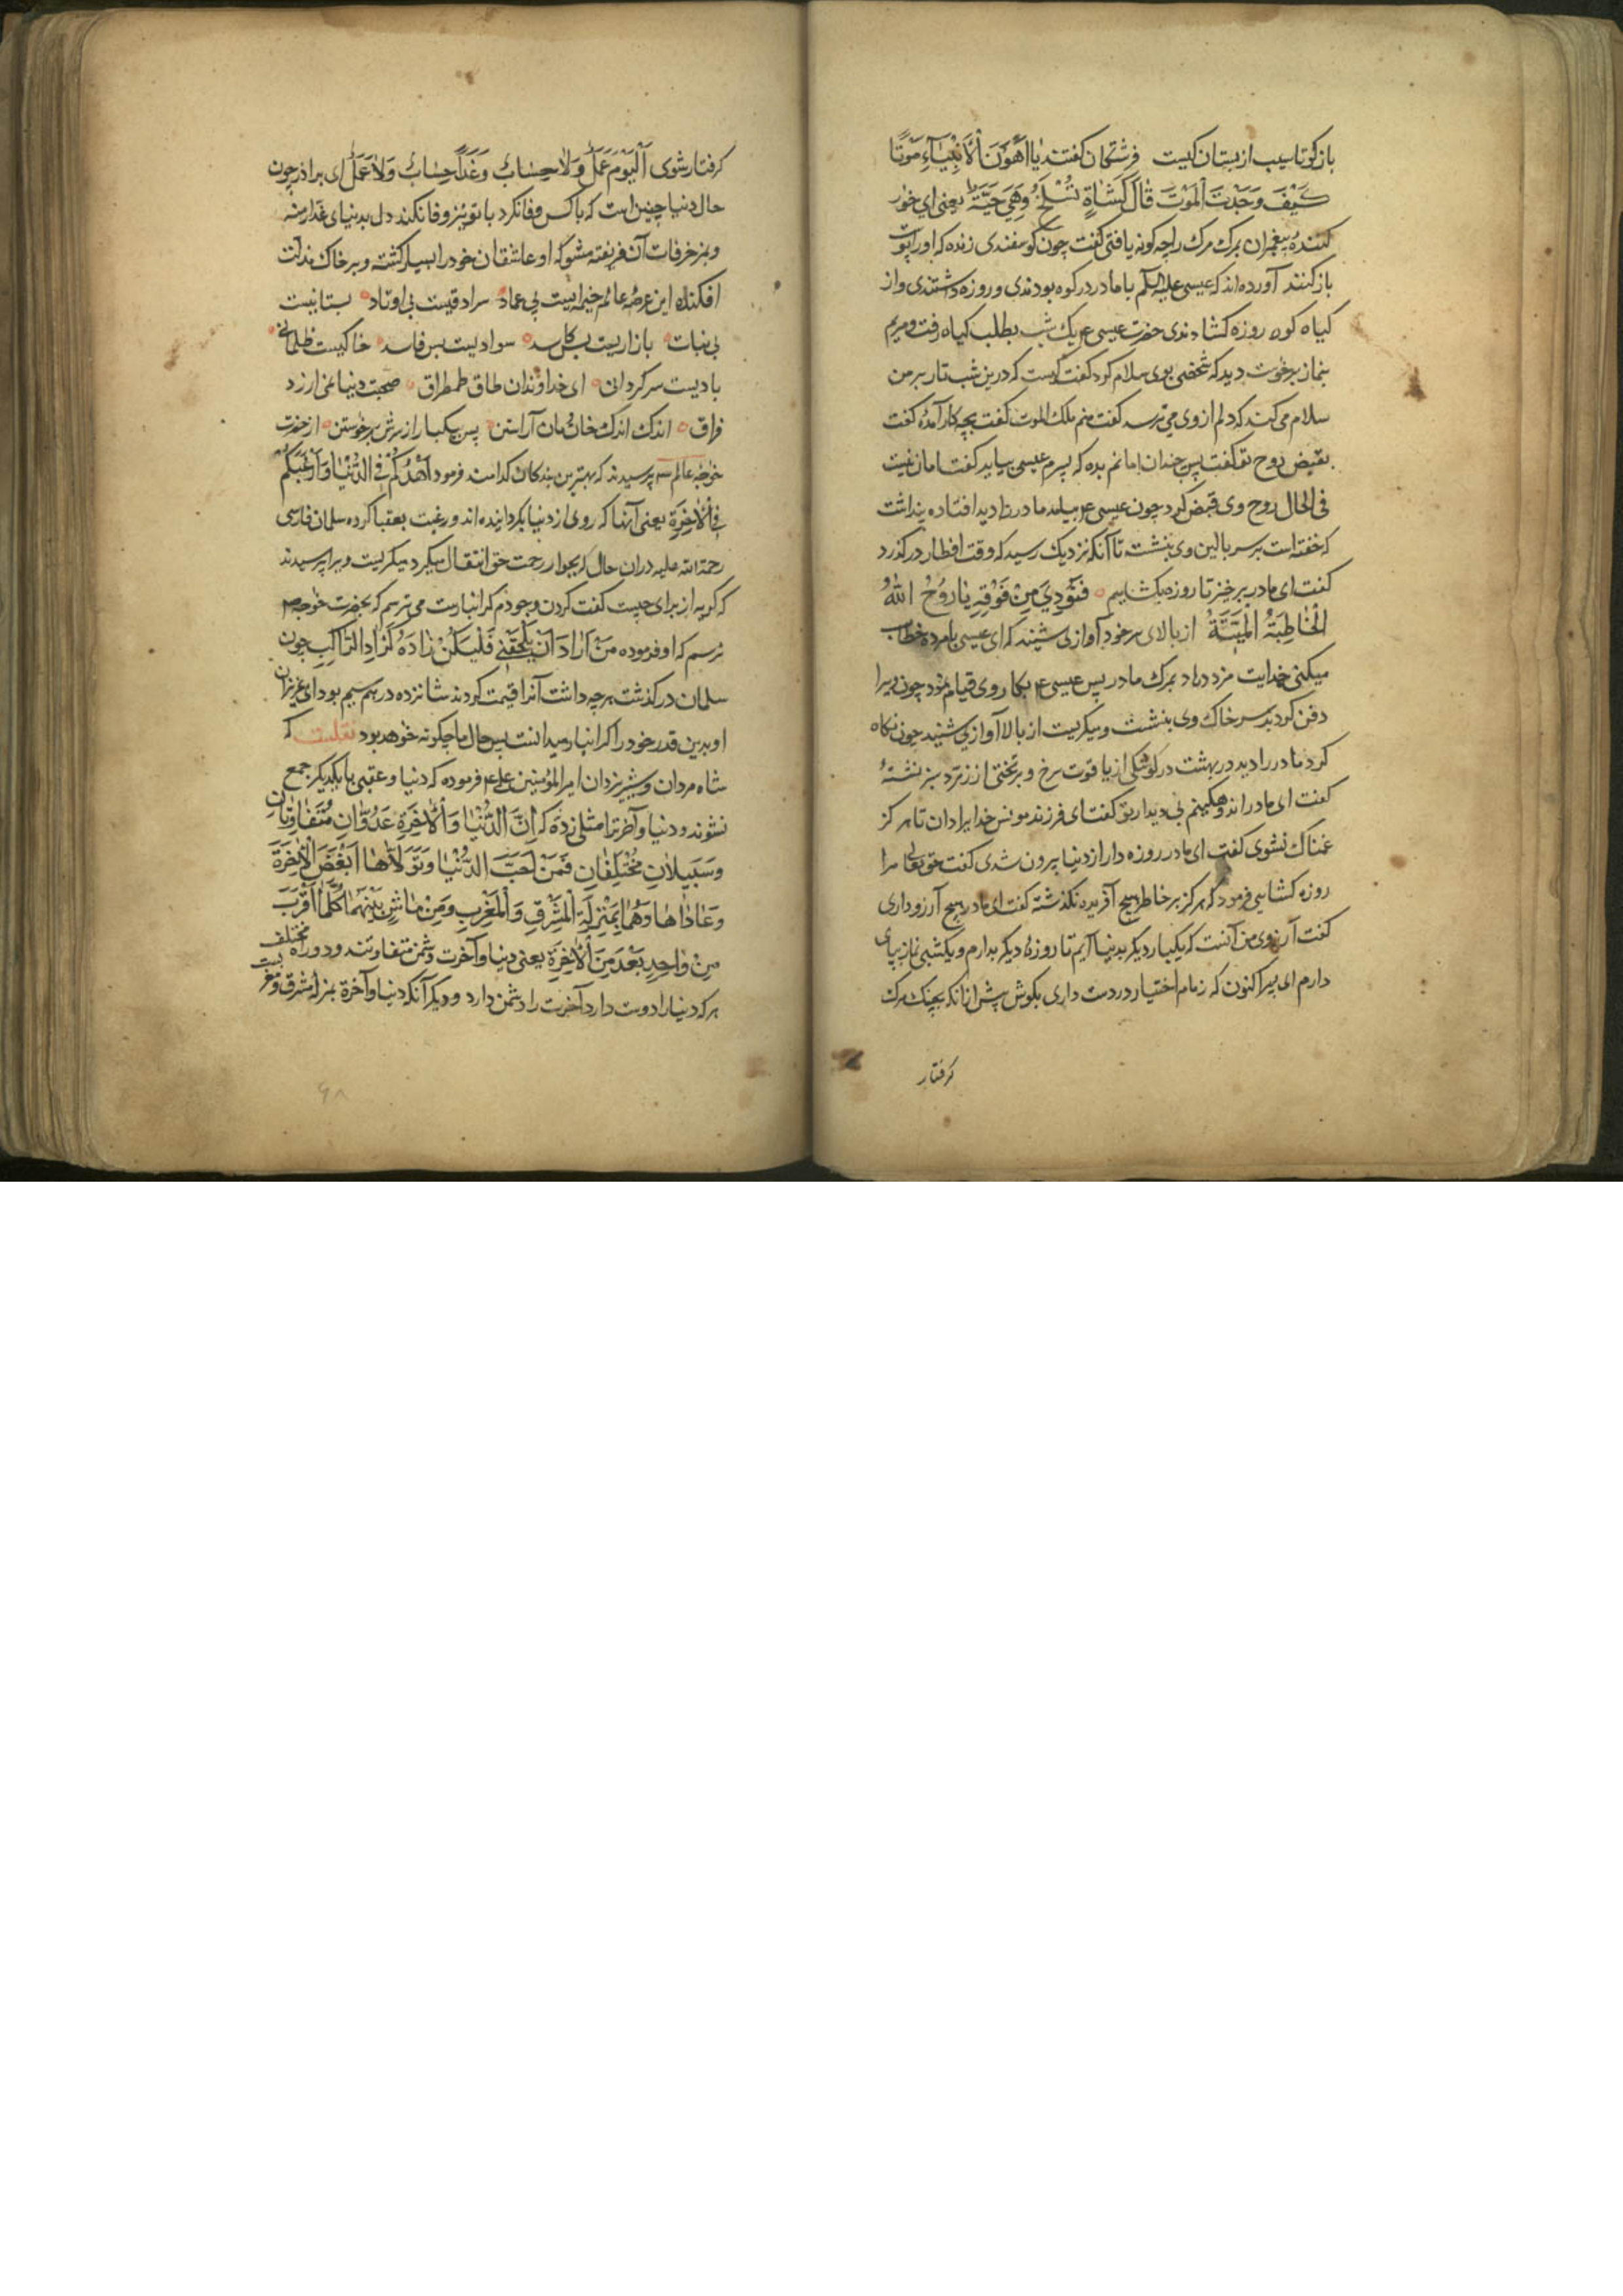 باز کو تا سیب از بستان کیست فرشتکان کفتند یا اَهْوَنَ اْلاَنْبِیَآءِ مَوْتًا
کَیْفَ وَجَدْتَ الْمَوْتَ قٰالَ کَشٰاةٍ تُسْلَخُ وَهِیَ حَیَّةٌ یعنی ای خوار
کننده پیغمبران بمرک مرک را چه کونه یافتی کفت چون کوسفندی زنده که او را پوست
باز کنند آورده‌اند که عیسی علیه السلم با مادر در کوه بودندی و روزه داشتندی و از
کیاه کوه روزه کشادندی حضرت عیسی ع یک شب بطلب کیاه رفت و مریم
بنماز برخوست دید که شخصی بوی سلام کرد کفت کیست که درین شب تار بر من
سلام می کند که دلم از وی می ترسد کفت منم ملک الموت کفت بچه کار آمدهٔ کفت
بقبض روح تو کفت پس چندان امانم بده که پسرم عیسی بیاید کفتا امان نیست
فی الحال روح وی قبض کرد چون عیسی ع بیامد مادر را دید افتاده پنداشت
که خفته است بر سر بالین وی بنشست تا آنکه نزدیک رسید که وقت افطار در کذرد
کفت ای مادر برخیز تا روزه بکشاییم فَنُودِیَ مِنْ فَوْقِهِ یٰا رُوْحُ اللهُ
اَلْخٰاطِبَةُ الْمَیِّتَةُ از بالای سر خود آوازی شنید که ای عیسی با مرده خطاب
میکنی خدایت مزد دهاد بمرک مادر پس عیسی ع بکار وی قیام نمود چون ویرا
دفن کردند بر سر خاک وی بنشست و میکریست از بالا آوازی شنید چون نکاه
کرد مادر را دید در بهشت در کوشکی از یاقوت سرخ و بر تختی از زمرد سبز نشستهٔ
کفت ای مادر اندوهکینم بی دیدار تو کفت ای فرزند مونس خدایرا دان تا هرکز
غمناک نشوی کفت ای مادر روزه دار از دنیا بیرون شدی کفت حق تعالی مرا
روزه کشایی فرمود که هرکز بر خاطر هیچ آفریده نکذشته کفت ای مادر هیچ آرزو داری
کفت آرزوی من آنست که یکبار دیکر بدنیا آیم تا روزهٔ دیکر بدارم و یکشبی نماز بپای
دارم ای پیر اکنون که زمام اختیار در دست داری بکوش پیش از آنکه بچنک مرک
کرفتار
کرفتار شوی اَلْیَوْمَ عَمَلٌ وَلاٰ حِسٰابٌ وَغَداً حِسٰابٌ وَلاٰ عَمَلٌ ای براذر چون
حال دنیا چنین است که با کس وفا نکرد با تو نیز وفا نکند دل بدنیای غدار منه
و بمزخرفات آن فریفته مشو که او عاشقان خود را بسیار کشته و بر خاک مذلت
افکنده این عرصه عالم خیمه ایست بی عماد سرادقیست بی اوتاد بستانیست
بی نبات بازاریست بس کاسد سوادیست بس فاسد خاکیست ظلمانی
بادیست سرکردانی ای خداوندان طاق طمطراق صحبت دنیا نمی ارزد
فراق اندک اندک خان و مان آراستن پس بیکبار از سرش برخوستن از حضرت
خواجهٔ عالم پرسیدند که بهترین بندکان کدامند فرمود اَزْهَدُکُمْ فِی الدُّنْیٰا وَاَرْغَبُکُمْ
فِی اْلاٰخِرَةِ یعنی آنها که روی از دنیا بکردانیده‌اند و رغبت بعقبا کرده سلمان فارسی
رحمة الله علیه در ان حال که بجوار رحمت حق انتقال میکرد میکریست ویرا پرسیدند
که کریه از برای چیست کفت کردن وجودم کرانبارست می ترسم که بحضرت خواجه ص
نرسم که او فرموده مَنْ اَرٰادَ اَنْ یَلْحَقَنِی فَلْیَکُنْ زٰادَهُ کَزٰادِ الرّٰاکِبِ چون
سلمان درکذشت هرچه داشت آنرا قیمت کردند شانزده درهم سیم بود ای عزیزان
او بدین قدر خود را کرانبار میدانست پس حال ما چکونه خواهد بود نقلست که
شاه مردان و شیر یزدان امیر المؤمنین علی ع فرموده که دنیا و عقبی با یکدیکر جمع
نشوند و دنیا و آخرترا مثلی زده که اِنَّ الدُّنْیٰا وَاْلاٰخِرَةِ عَدُوّٰانِ مُتَفٰاوِتٰانِ
وَسَبِیلاٰنِ مُخْتَلِفٰانِ فَمَنْ اَحَبَّ الدُّنْیٰا وَتَوَلاّٰهٰا اَبْغَضَ اْلاٰخِرَةَ
وَعٰادٰاهٰا وَهُمٰا بِمَنْزِلَةِ الْمَشْرِقِ وَالْمَغْرِبِ وَمِنْ مٰاشٍ بَیْنَهُمٰا کُلَّمٰا اَقْرَبَ
مِنْ وٰاحِدٍ بَعْدَ مِنَ اْلاٰخِرَةِ یعنی دنیا و آخرت دشمن متفاوتند و دو راه مختلف
هرکه دنیا را دوست دارد آخرت را دشمن دارد و دیکر آنکه دنیا و آخرة بمنزله مشرق و مغربست
۶۸